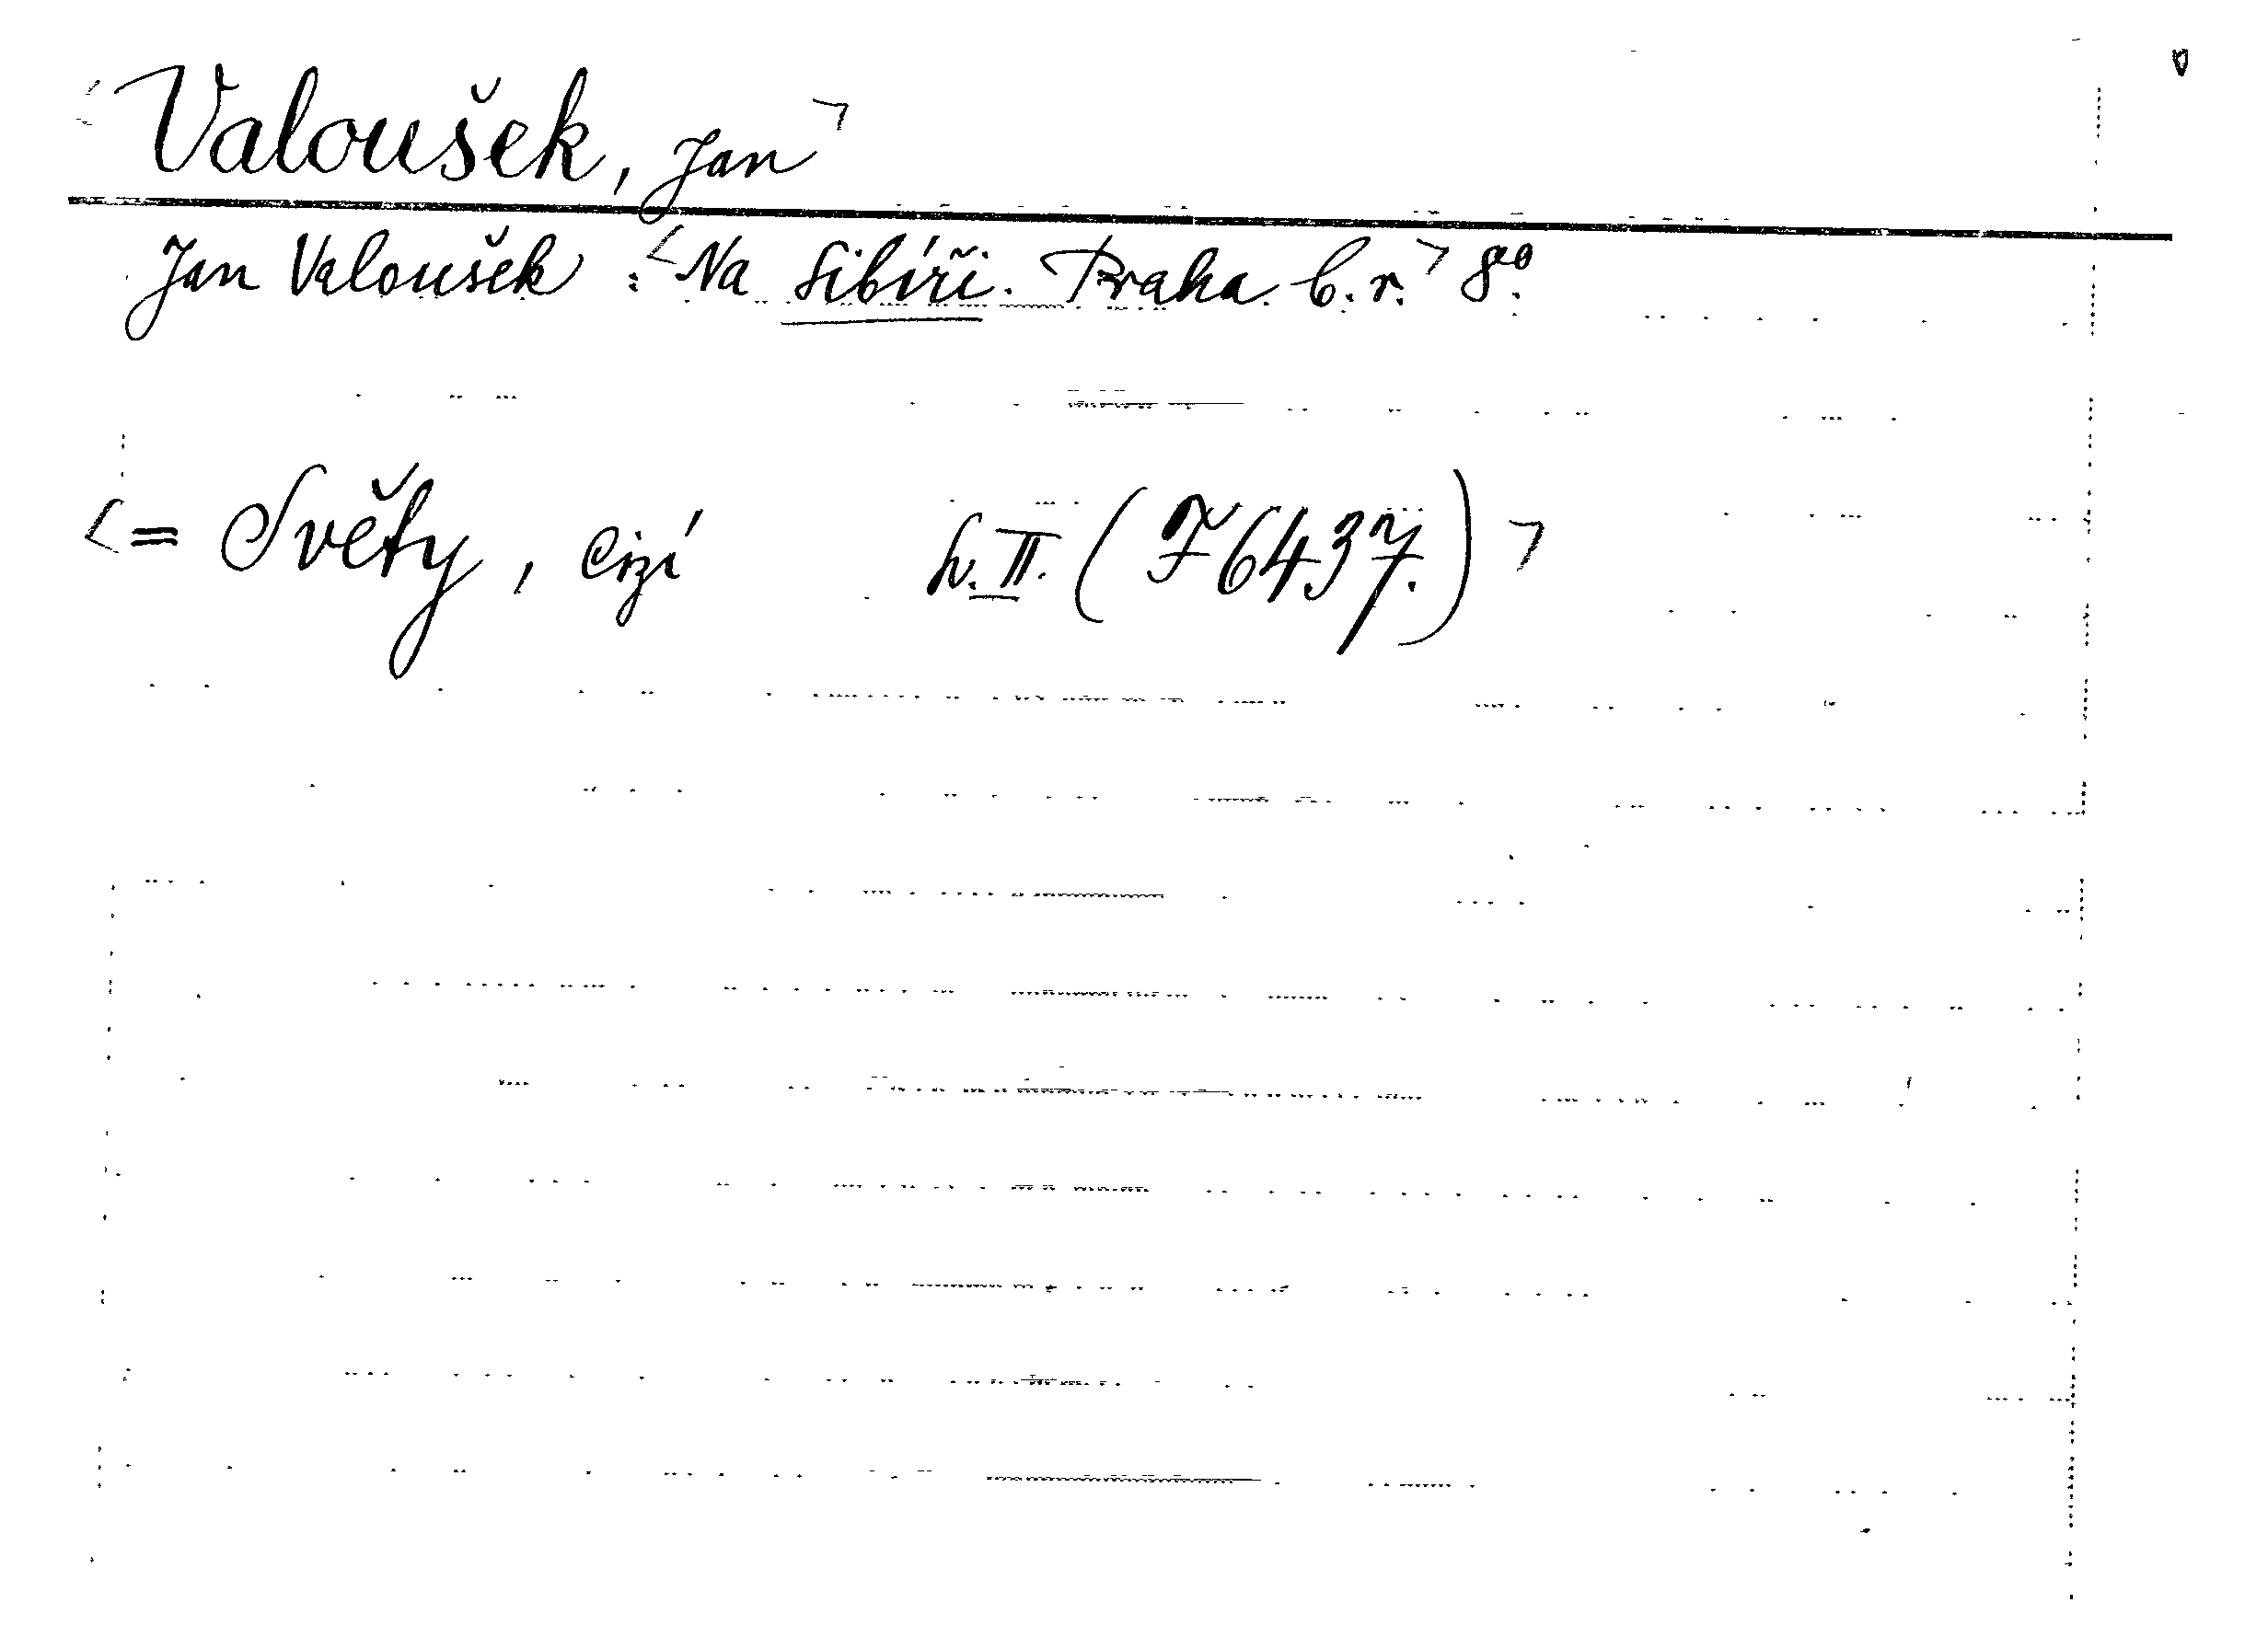 <Valoušek, Jan>
Jan Valoušek: <Na Sibíři. Praha b. r.> 8°.
<= Světy, cizí h. II. (F 6437.)>